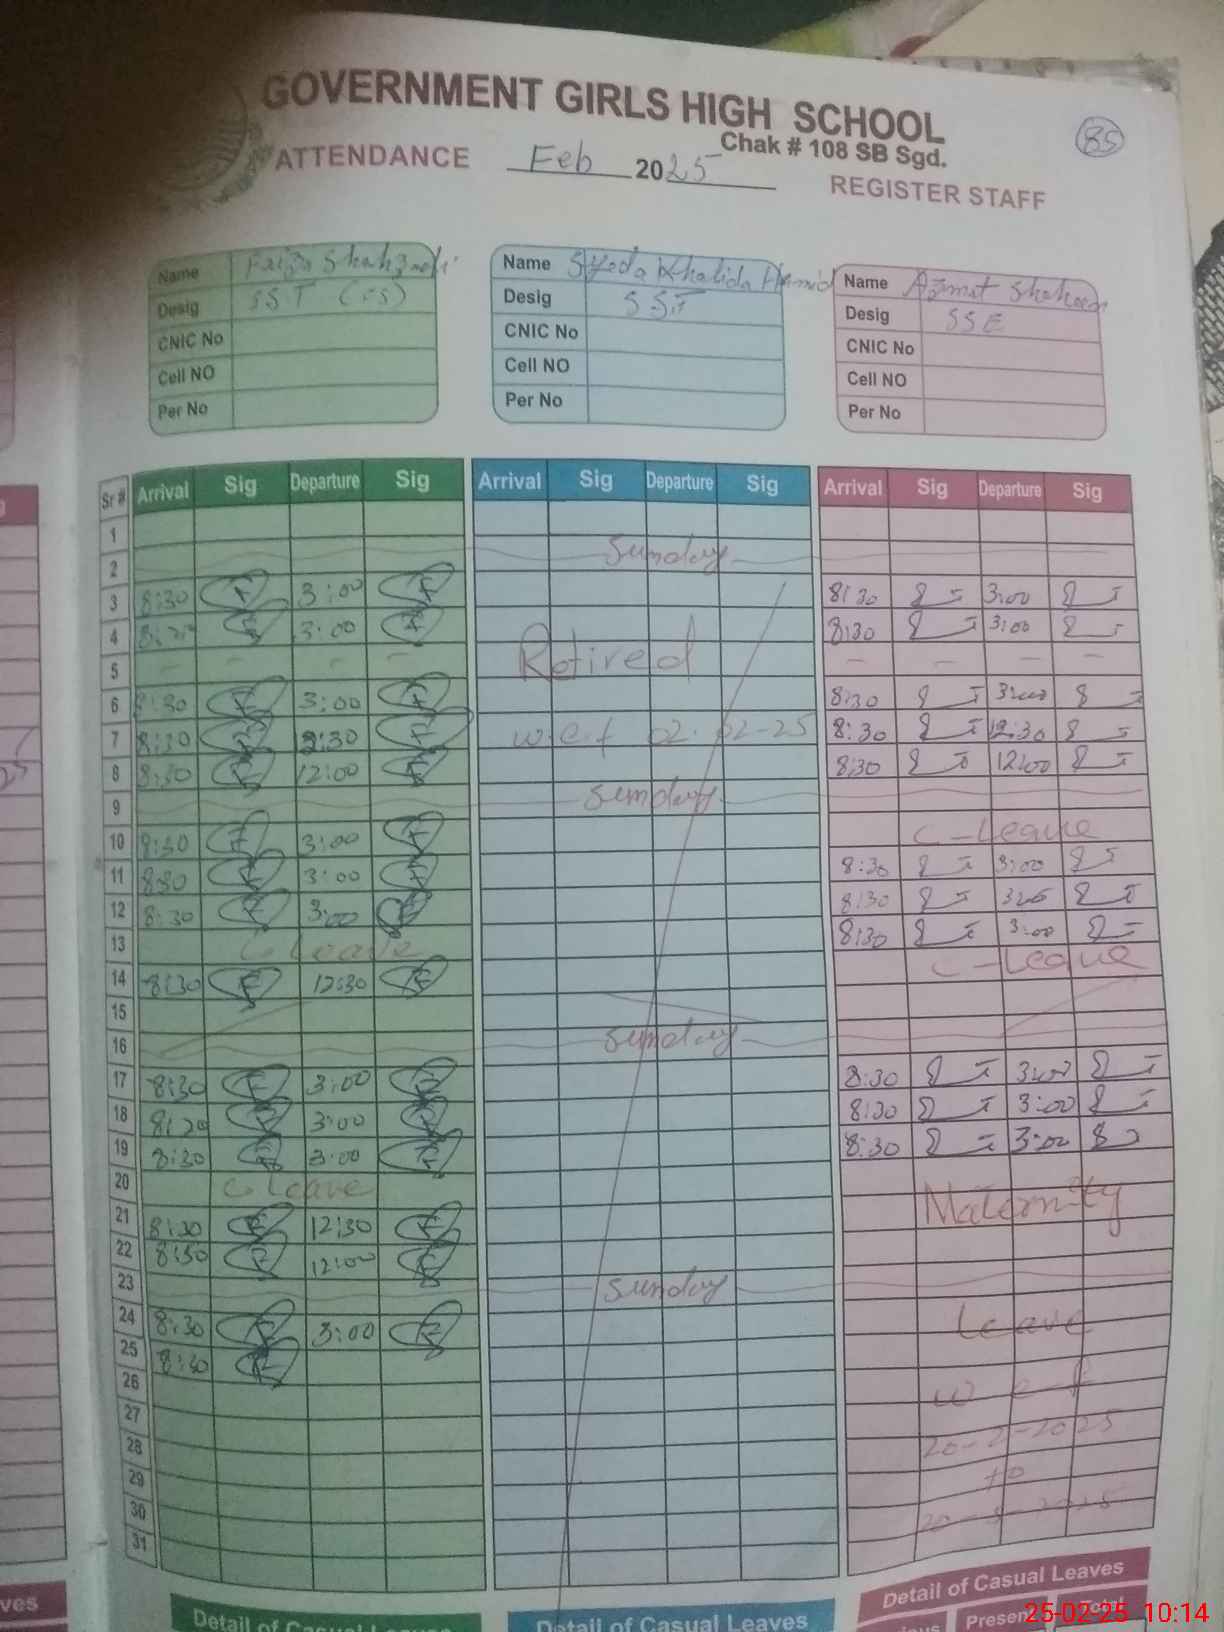 GOVERNMENT GIRLS HIGH SCHOOL
Chak # 108 SB Sgd.
85
ATTENDANCE Feb 2025 REGISTER STAFF
Name Faiza
Desig SST
CNIC No
Cell NO
Per No
Name Syeda Khalida Hamid
Desig SST
CNIC No
Cell NO
Per No
Name Azmat Shaheen
Desig SSE
CNIC No
Cell NO
Per No
Sr # Arrival Sig Departure Sig Arrival Sig Departure Sig Arrival Sig Departure Sig
1
2 Sunday
3 8:30 3:00 8:30 3:00
4 3:00 8:30 3:00
5 - - - - Retired - - - -
6 8:30 3:00 8:30 3:00
7 8:30 w.e.f 02.02-25 8:30 12:30
8 8:30 12:00 8:30 12:00
9 Sunday
10 8:30 3:00 C-Leave
11 8:30 3:00 8:30 3:00
12 8:30 3:00 8:30
13 C Leave 8:30 3:00
14 8:30 12:30 C-Leave
15
16 Sunday
17 8:30 3:00 8:30 3:00
18 3:00 8:30 3:00
19 8:30 3:00 8:30 3:00
20 C Leave
21 8:30 12:30 Maternity
22 12:00
23 Sunday
24 8:30 3:00 Leave
25 8:30
26 w e f
27
28 20-2-2025
29 to
30 2025
31
Detail of Casual Leaves
Detail of Casual Leaves
Detail of Casual Leaves
Present Total
ves
25-02-25 10:14